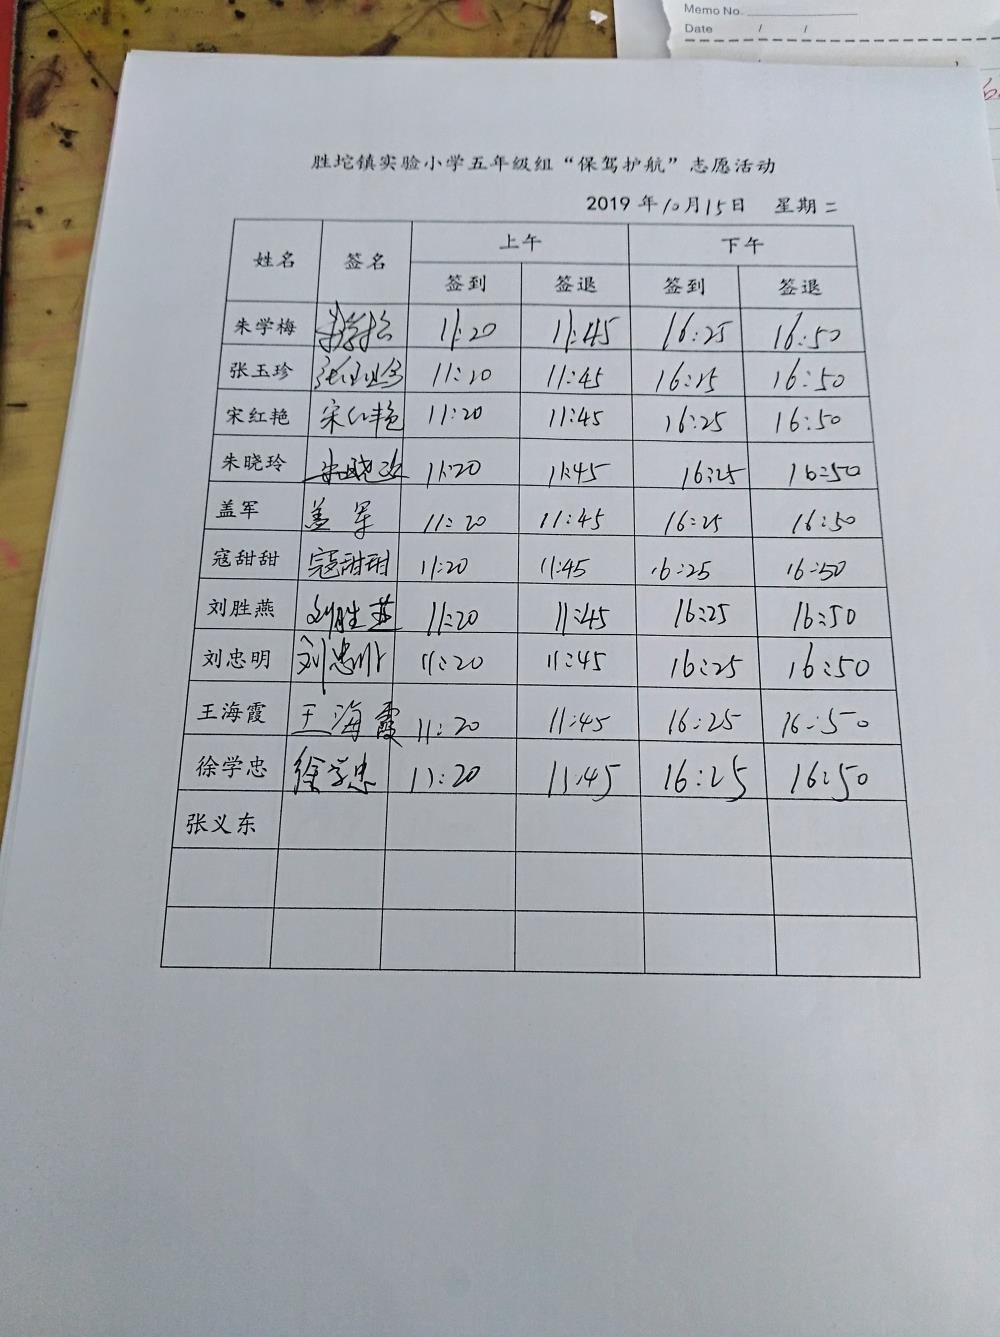 Memo No.
Date / /
胜坨镇实验小学五年级组“保驾护航”志愿活动
2019 年10月15日 星期二
姓名 签名 上午 下午
签到 签退 签到 签退
朱学梅 11:20 11:45 16:25 16:50
张玉珍 张玉珍 11:20 11:45 16:25 16:50
宋红艳 宋红艳 11:20 11:45 16:25 16:50
朱晓玲 朱晓玲 11:20 11:45 16:25 16:50
盖军 盖军 11:20 11:45 16:25 16:50
寇甜甜 寇甜甜 11:20 11:45 16:25 16:50
刘胜燕 刘胜燕 11:20 11:45 16:25 16:50
刘忠明 刘忠明 11:20 11:45 16:25 16:50
王海霞 王海霞 11:20 11:45 16:25 16:50
徐学忠 徐学忠 11:20 11:45 16:25 16:50
张义东